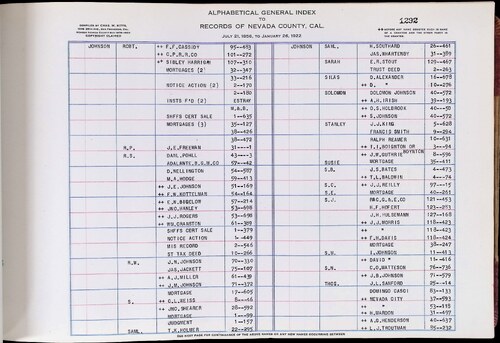 ALPHABETICAL GENERAL INDEX
TO
RECORDS OF NEVADA COUNTY, CAL.
JULY 21, 1856, TO JANUARY 29, 1922
COPYRIGHT CLAIMED
1292
JOHNSON ROBT. ++ F.F.CASSIDY 95--483
++ C.P.R.R.CO 101--272
++ SIBLEY HARRIGAN 107--310
MORTGAGES (2) 32--347
33--216
NOTICE ACTION (2) 2--170
2--180
INSTS F'D (2) ESTRAY
M.&B.
SHFFS CERT SALE 1--635
MORTGAGES (3) 35--127
38--426
38--472
R.P. J.E.FREEMAN 31---41
R.S. DARL.POHLL 43----3
57---42
D.RELLINGTON 54--587
M.A.HODGE 59--413
++ J.E.JOHNSON 51--169
++ E.N.NOTTELMAN 54--164
++ E.N.BIGELOW 57--214
++ JNO.HANLEY 53--698
++ J.J.ROGERS 53--698
++ WM.CRANSTON 61--309
SHFFS CERT SALE 1--379
NOTICE ACTION 4--449
MIS RECORD 2--546
ST TAX DEED 10--266
R.W. J.N.JOHNSON 70--330
JAS.JACKETT 75--107
++ A.J.MILLER 61--439
++ J.M.JOHNSON 71--372
MORTGAGE 17--605
S. ++ C.L.REISS 8---46
++ JNO.SHEARER 28--592
MORTGAGE 1---99
JUDGMENT 1--157
SAML. T.K.HOLMER 22--295
JOHNSON SAML. H.SOUTHARD 26--461
JAS.WHARTENBY 31--389
SARAH E.R.STOUT 129--467
TRUST DEED 2--263
SILAS D.ALEXANDER 16--478
++ D. " 10--276
SOLOMON SOLOMON JOHNSON 40--572
++ A.H.IRISH 33--193
++ D.S.HOLBROOK 40---50
++ S.JOHNSON 40--572
STANLEY J.J.KING 5--628
FRANCIS SMITH 9--294
RALPH REAMER 10--631
++ T.I.BOIGNTON OR 3---94
++ J.W.GUTHRIE BOYNTON 8--556
SUSIE MORTGAGE 35---41
S.B. J.S.BATES 4--473
++ T.L.BALDWIN 4---74
S.C. ++ J.J.REILLY 97--115
S.E. MORTGAGE 40--263
S.J. 121--453
H.F.HOFERT 123--253
J.H.HULSEMAN 127--168
++ J.J.MORRIS 118--423
++ " 118--423
++ F.H.DAVIS 118--424
MORTGAGE 38--247
S.M. I.JOHNSON 71--483
++ DAVID " 11--416
S.N. C.D.MATTESON 70--736
++ J.B.JOHNSON 71--579
THOS. J.L.SANFORD 25--414
DOMINGO CASCI 83--433
++ NEVADA CITY 37--593
++ " 53--418
++ H.WARDON 31--497
++ A.D.HENDERSON 48--437
++ L.J.TROUTMAN 85--232